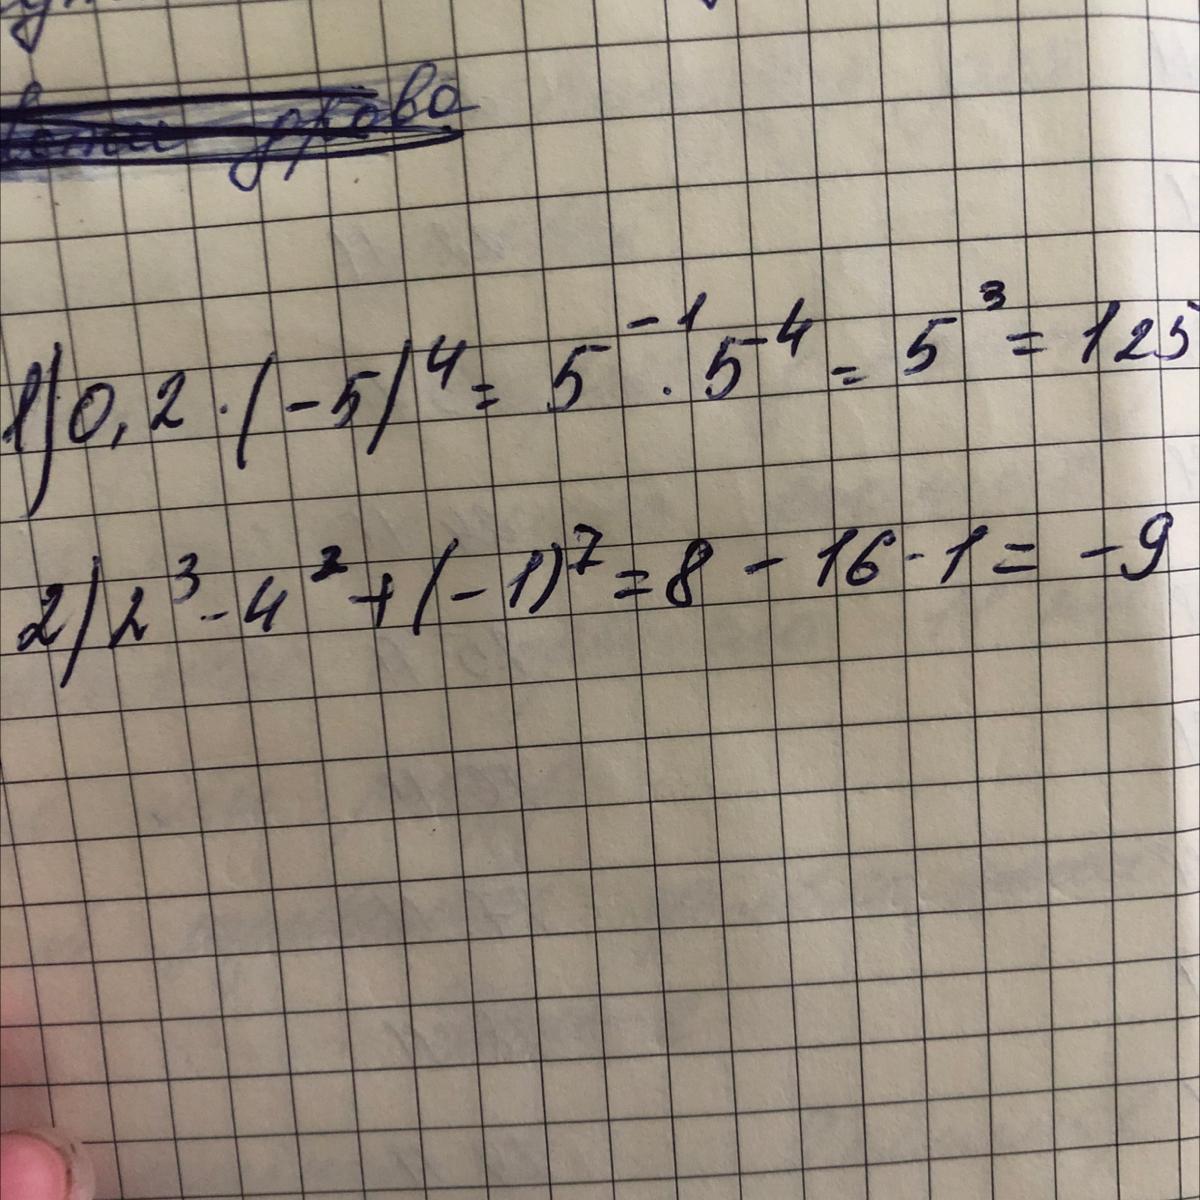 дрова
1) 0,2 · (-5)⁴ = 5⁻¹ · 5⁴ = 5³ = 125
2) 2³ - 4² + (-1)⁷ = 8 - 16 - 1 = -9